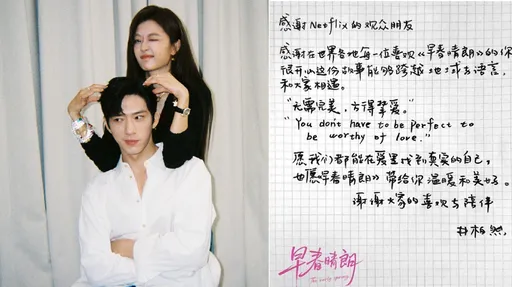 感谢Netflix的观众朋友
感谢在世界各地每一位喜欢《早春晴朗》的你
很开心这份故事能够跨越地域与语言,
和大家相遇。
"无需完美,方得挚爱。"
"You don't have to be perfect to
be worthy of love."
愿我们都能在爱里找到真实的自己,
也愿早春晴朗》带给你温暖和美好。
谢谢大家的喜欢与陪伴
井柏然.
早春晴朗